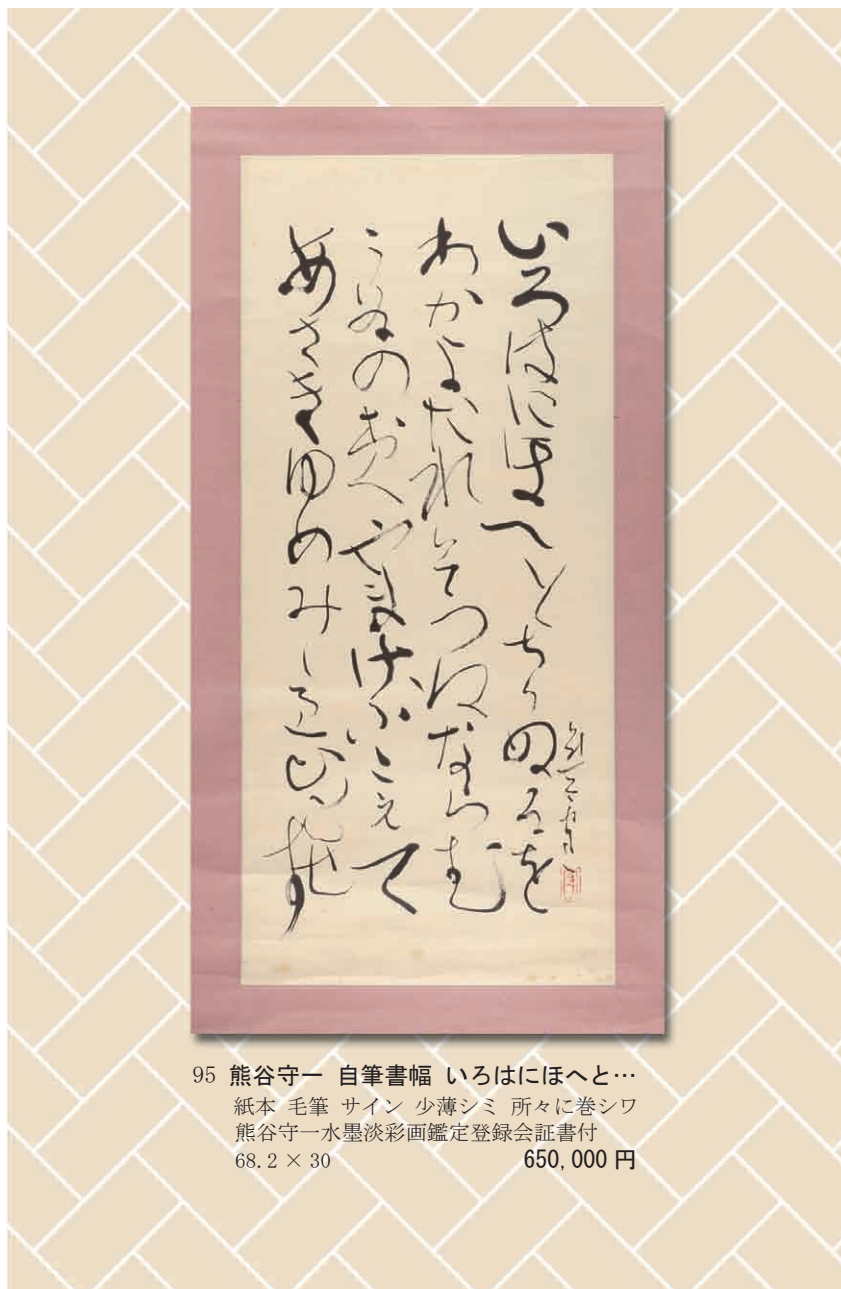 いろはにほへとちりぬるを
わかよたれそつねならむ
うゐのおくやまけふこえて
あさきゆめみしゑひもせす
95 熊谷守一 自筆書幅 いろはにほへと…
紙本 毛筆 サイン 少薄シミ 所々に巻シワ
熊谷守一水墨淡彩画鑑定登録会証書付
68.2 × 30 650,000 円